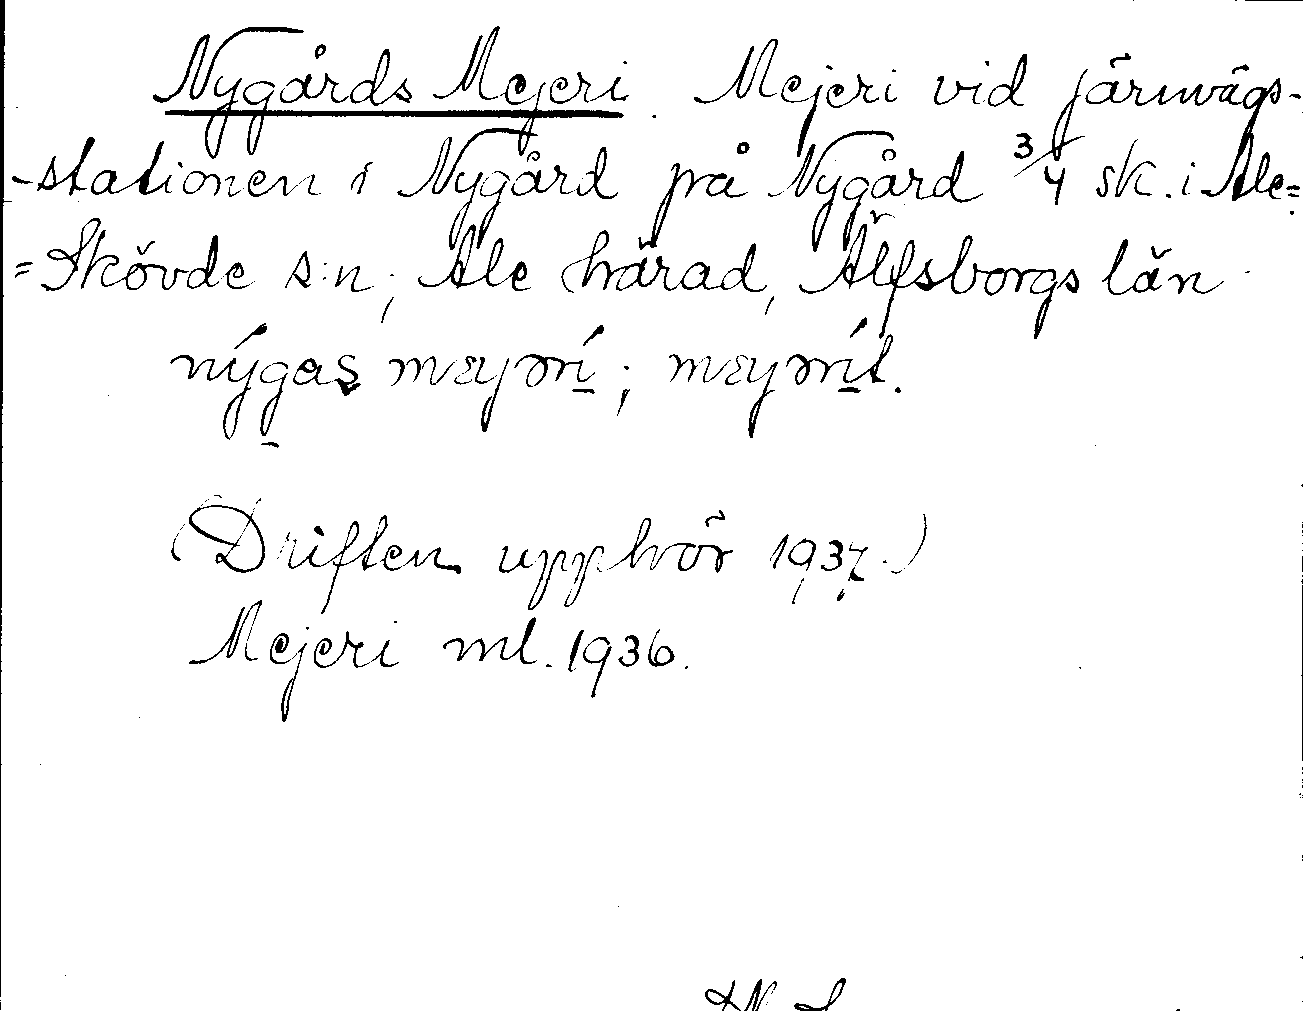 Nygårds Mejeri. Mejeri vid järnvägs-
-stationen i Nygård på Nygård 3/4 sk. i Ale=
=Skövde s:n, Ale härad, Älfsborgs län
nýgas mɛyərí; mɛyərít.
(Driften upphör 1937.)
Mejeri ml. 1936.